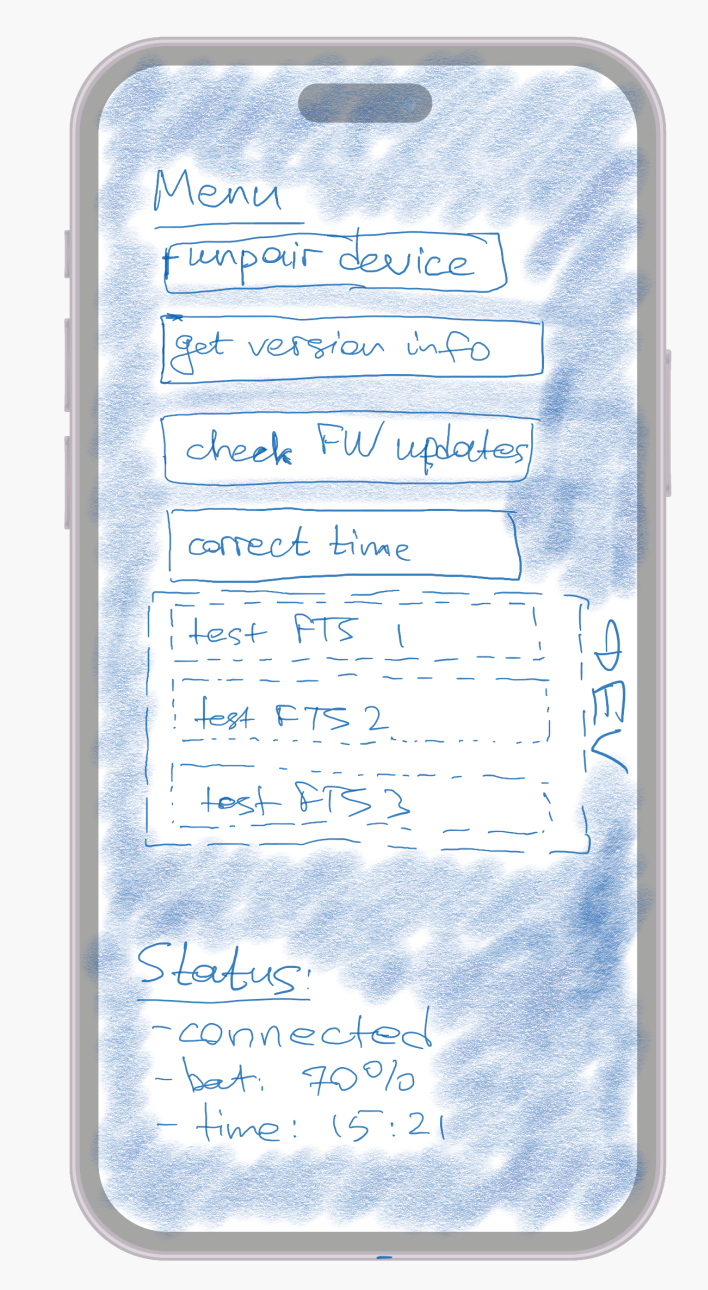 Menu
unpair device
get version info
check FW updates
correct time
test FTS 1
test FTS 2
test FTS 3
DEV
Status:
- connected
- bat: 70%
- time: 15:21